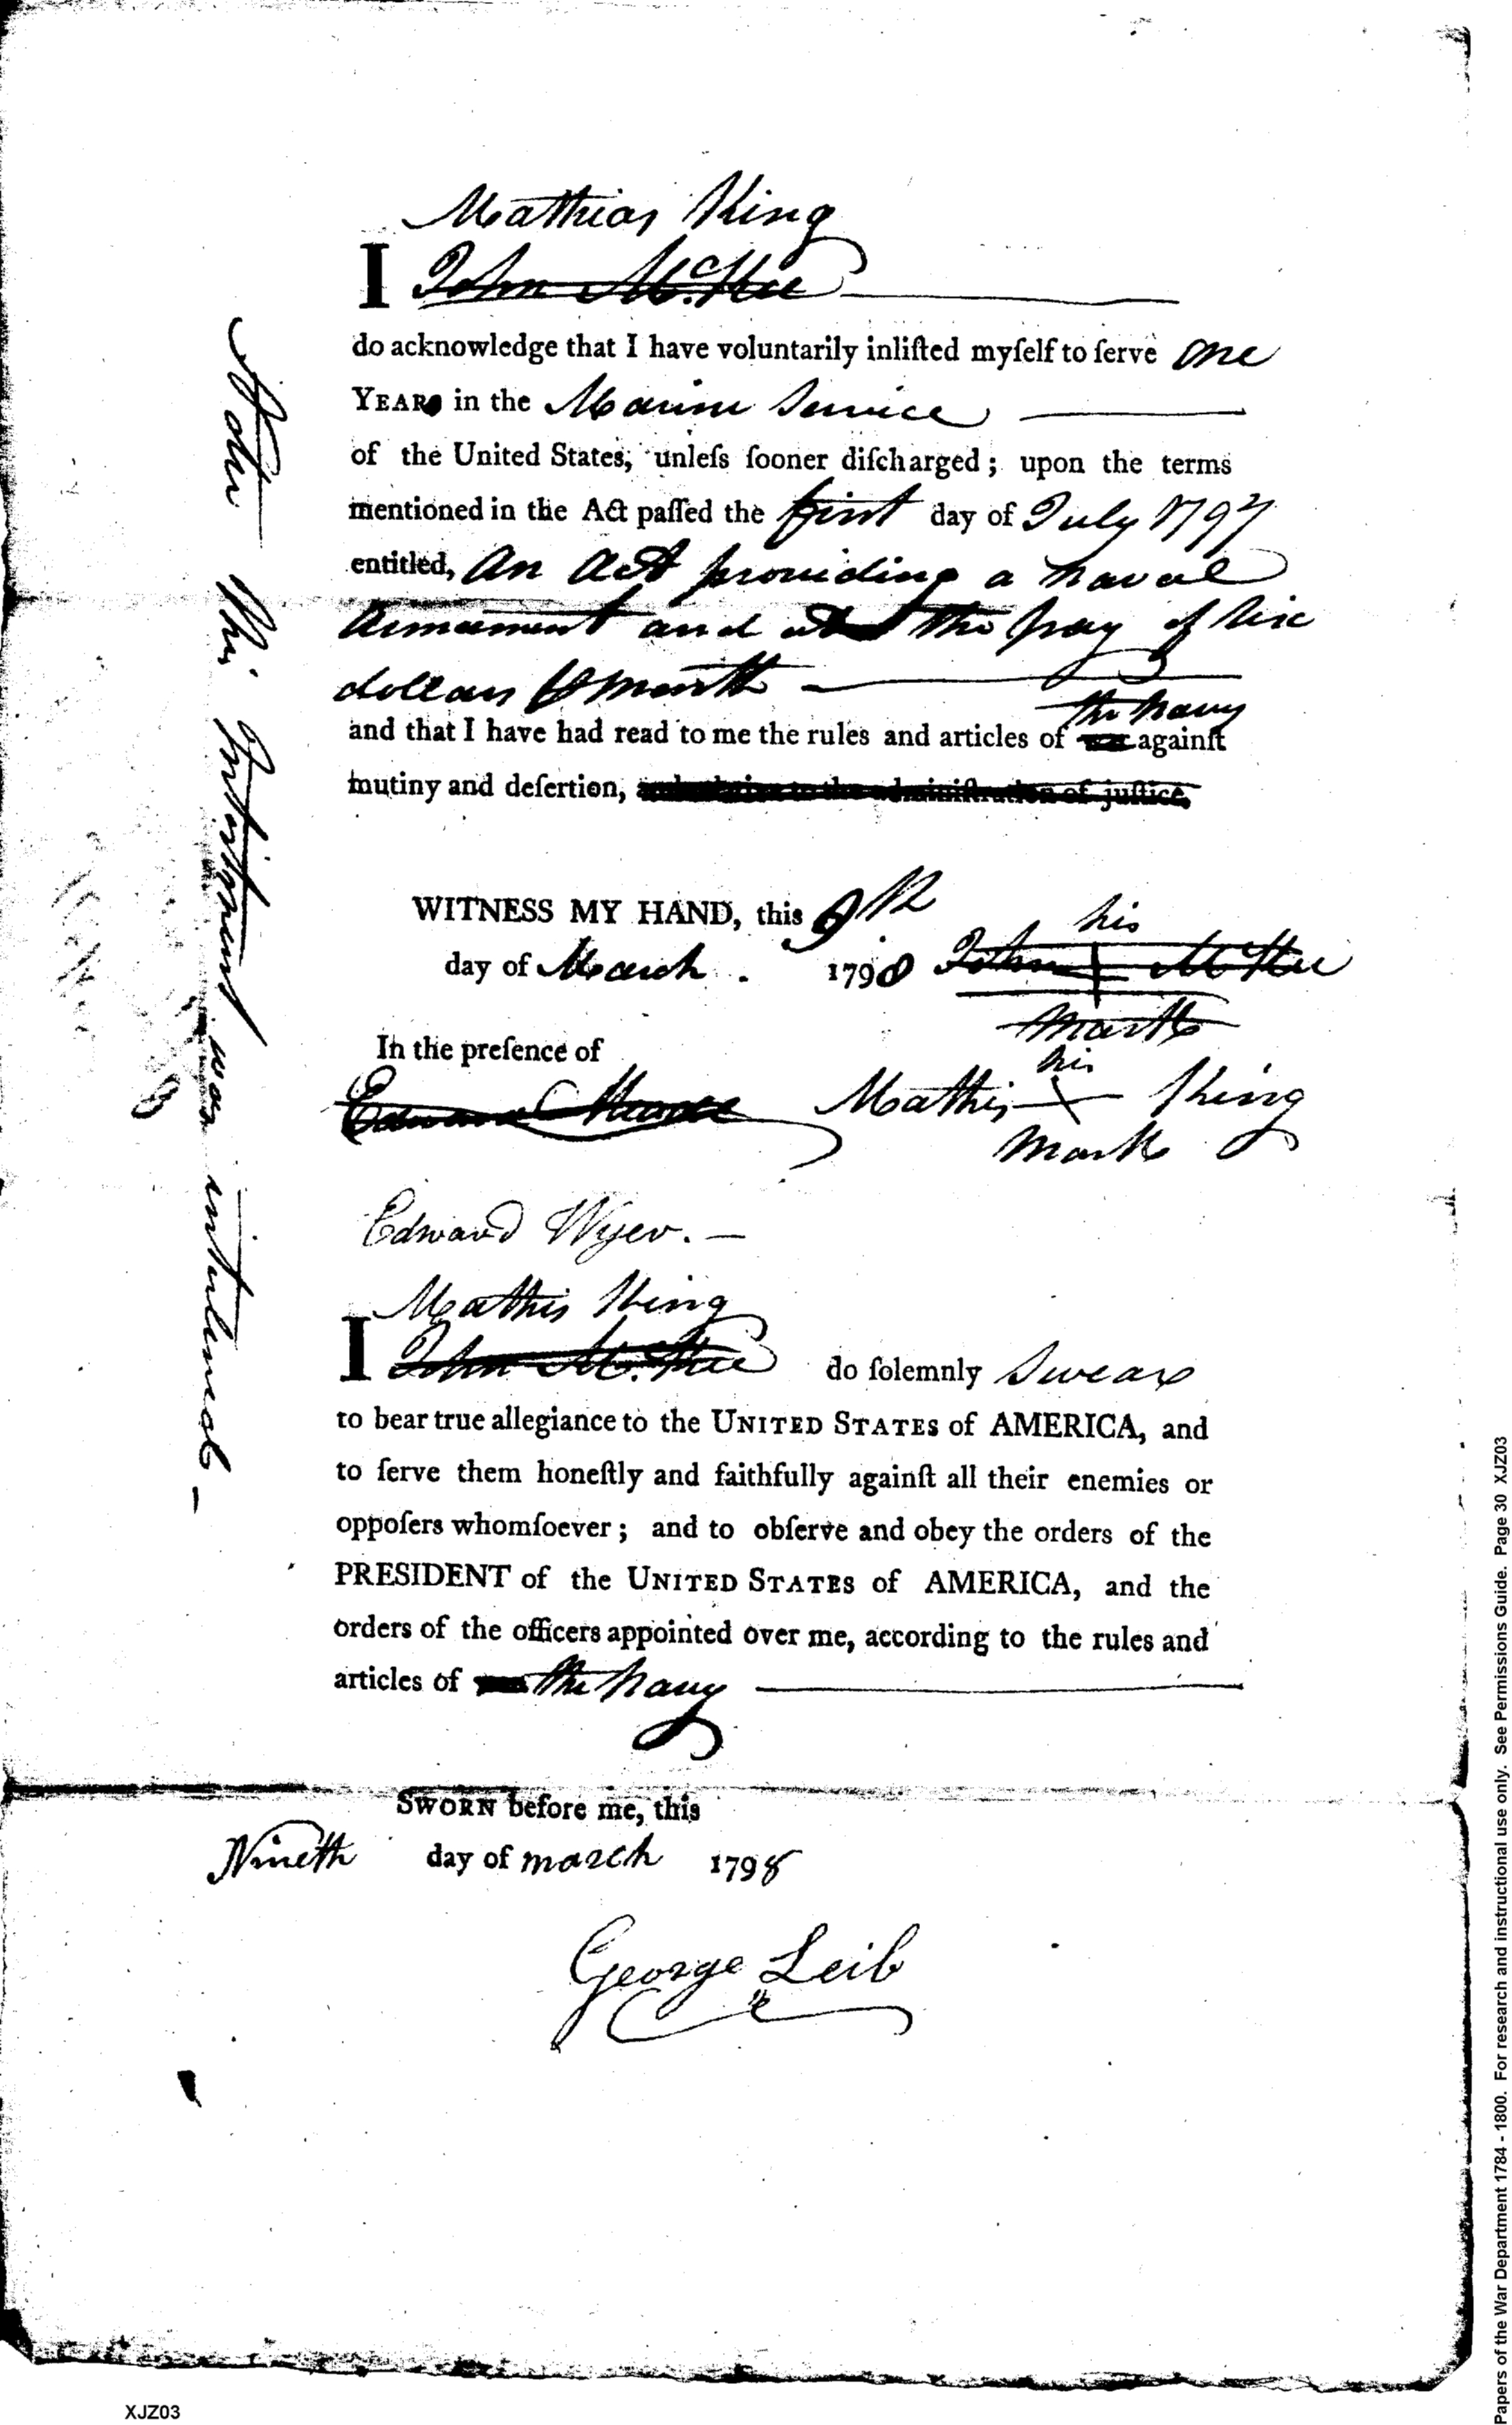 Mathias King
I John McKee
do acknowledge that I have voluntarily inlisted myself to serve one
YEARs in the Marine Service
of the United States, unless sooner discharged; upon the terms
mentioned in the Act passed the first day of July 1797
entitled, An Act providing a naval
Armament and at the pay of Six
dollars ⅌ month
the Navy
and that I have had read to me the rules and articles of war against
mutiny and desertion, and relative to the administration of justice,
WITNESS MY HAND, this 9th
day of March 1798
his
John + McKee
mark
In the presence of
his
Mathis + King
mark
Edward Wyer.
Mathis King
I John McKee do solemnly Swear
to bear true allegiance to the UNITED STATES of AMERICA, and
to serve them honestly and faithfully against all their enemies or
opposers whomsoever; and to observe and obey the orders of the
PRESIDENT of the UNITED STATES of AMERICA, and the
orders of the officers appointed over me, according to the rules and
articles of war the Navy
SWORN before me, this
Nineth day of march 1798
George Leib
Note This Inlistment was interlined
XJZ03
Papers of the War Department 1784 - 1800. For research and instructional use only. See Permissions Guide. Page 30 XJZ03